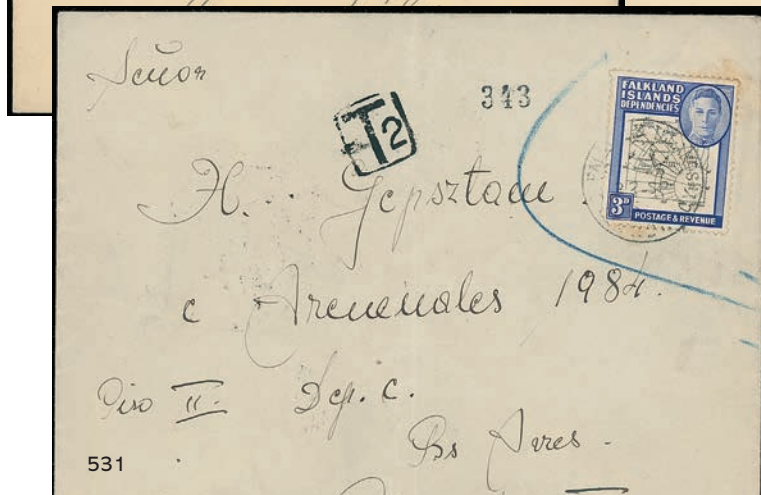 Señor
343
T2
FALKLAND
ISLANDS
DEPENDENCIES
3D
POSTAGE & REVENUE
H. Gepsztam
c Arenenales 1984.
Piso II. Dep. C.
Bs Aires.
531